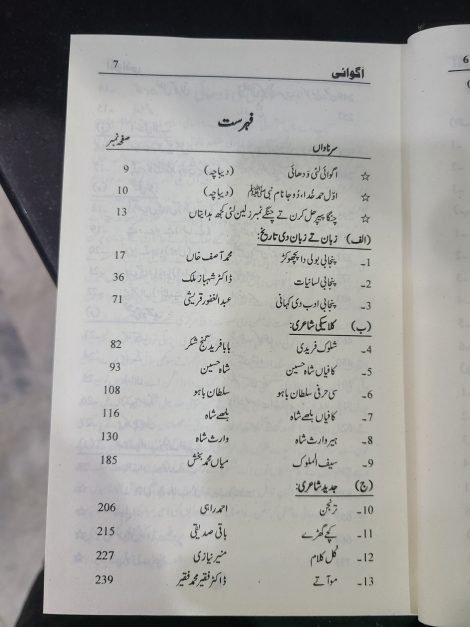 7 اگوائی
فہرست
سرناواں صفحہ نمبر
☆ اگوائی لئی ودھائی (دیباچہ) 9
☆ اوّل حمد خُدا، دُوجا نام نبی ﷺ (دیباچہ) 10
☆ چنگا پیپر حل کرن تے چنگے نمبر لین لئی کجھ ہدایتاں 13
(الف) زبان تے زبان دی تاریخ:
1۔ پنجابی بولی دا پچھوکڑ محمد آصف خاں 17
2۔ پنجابی لسانیات ڈاکٹر شہباز ملک 36
3۔ پنجابی ادب دی کہانی عبدالغفور قریشی 71
(ب) کلاسیکی شاعری:
4۔ شلوک فریدی بابا فرید گنج شکر 82
5۔ کافیاں شاہ حسین شاہ حسین 93
6۔ سی حرفی سلطان باہو سلطان باہو 108
7۔ کافیاں بلھے شاہ بلھے شاہ 116
8۔ ہیر وارث شاہ وارث شاہ 130
9۔ سیف الملوک میاں محمد بخش 185
(ج) جدید شاعری:
10۔ ترنجن احمد راہی 206
11۔ کچے گھڑے باقی صدیقی 215
12۔ کُل کلام منیر نیازی 227
13۔ مواتے ڈاکٹر فقیر محمد فقیر 239
6